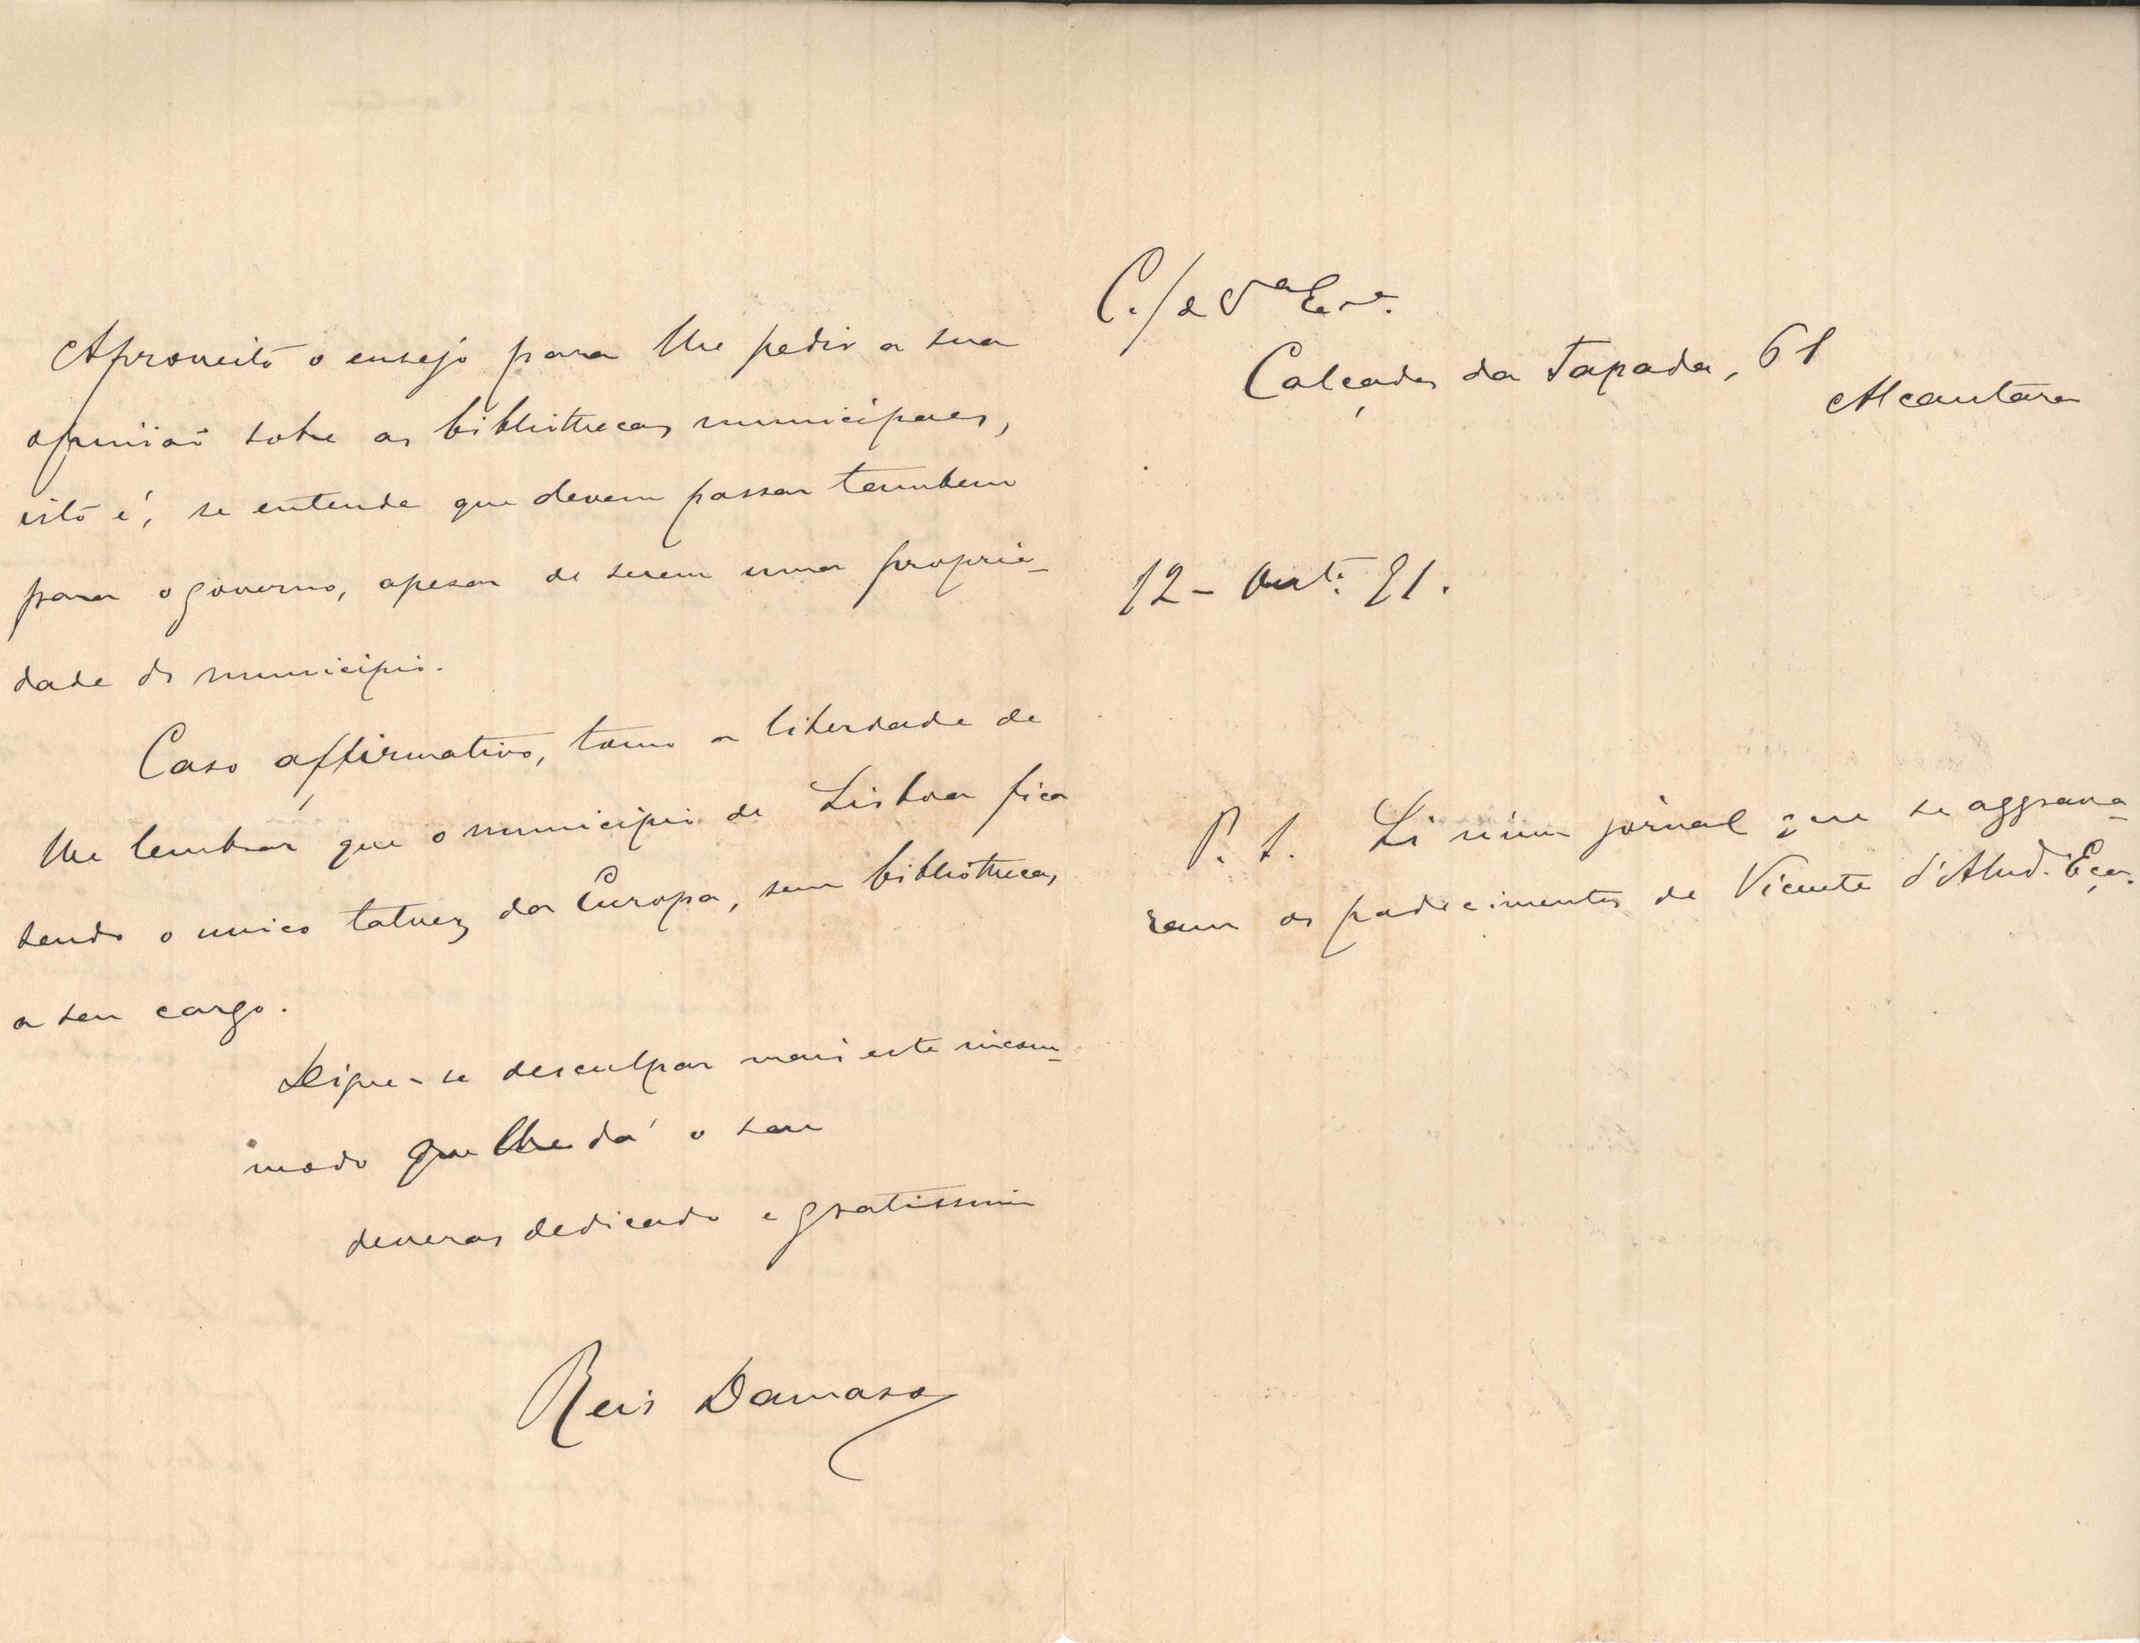 Aproveito o ensejo para lhe pedir a sua
opinião sobre as bibliothecas municipaes,
isto é, se entende que devem passar tambem
para o governo, apesar de serem uma proprie-
dade do municipio.
Caso affirmativo, tomo a liberdade de
lhe lembrar que o municipio de Lisboa fica
sendo o unico talvez da Europa, sem bibliothecas
a seu cargo.
Digne-se desculpar mais este incom-
modo que lhe dá o seu
deveras dedicado e gratissimo
Reis Damaso
C./de V.ª Ex.ª
Calçada da Tapada, 61
Alcantara
12 - Out.º 91.
P. S. Li n'um jornal que se aggrava-
ram os padecimentos de Vicente d'Almd. Eça.